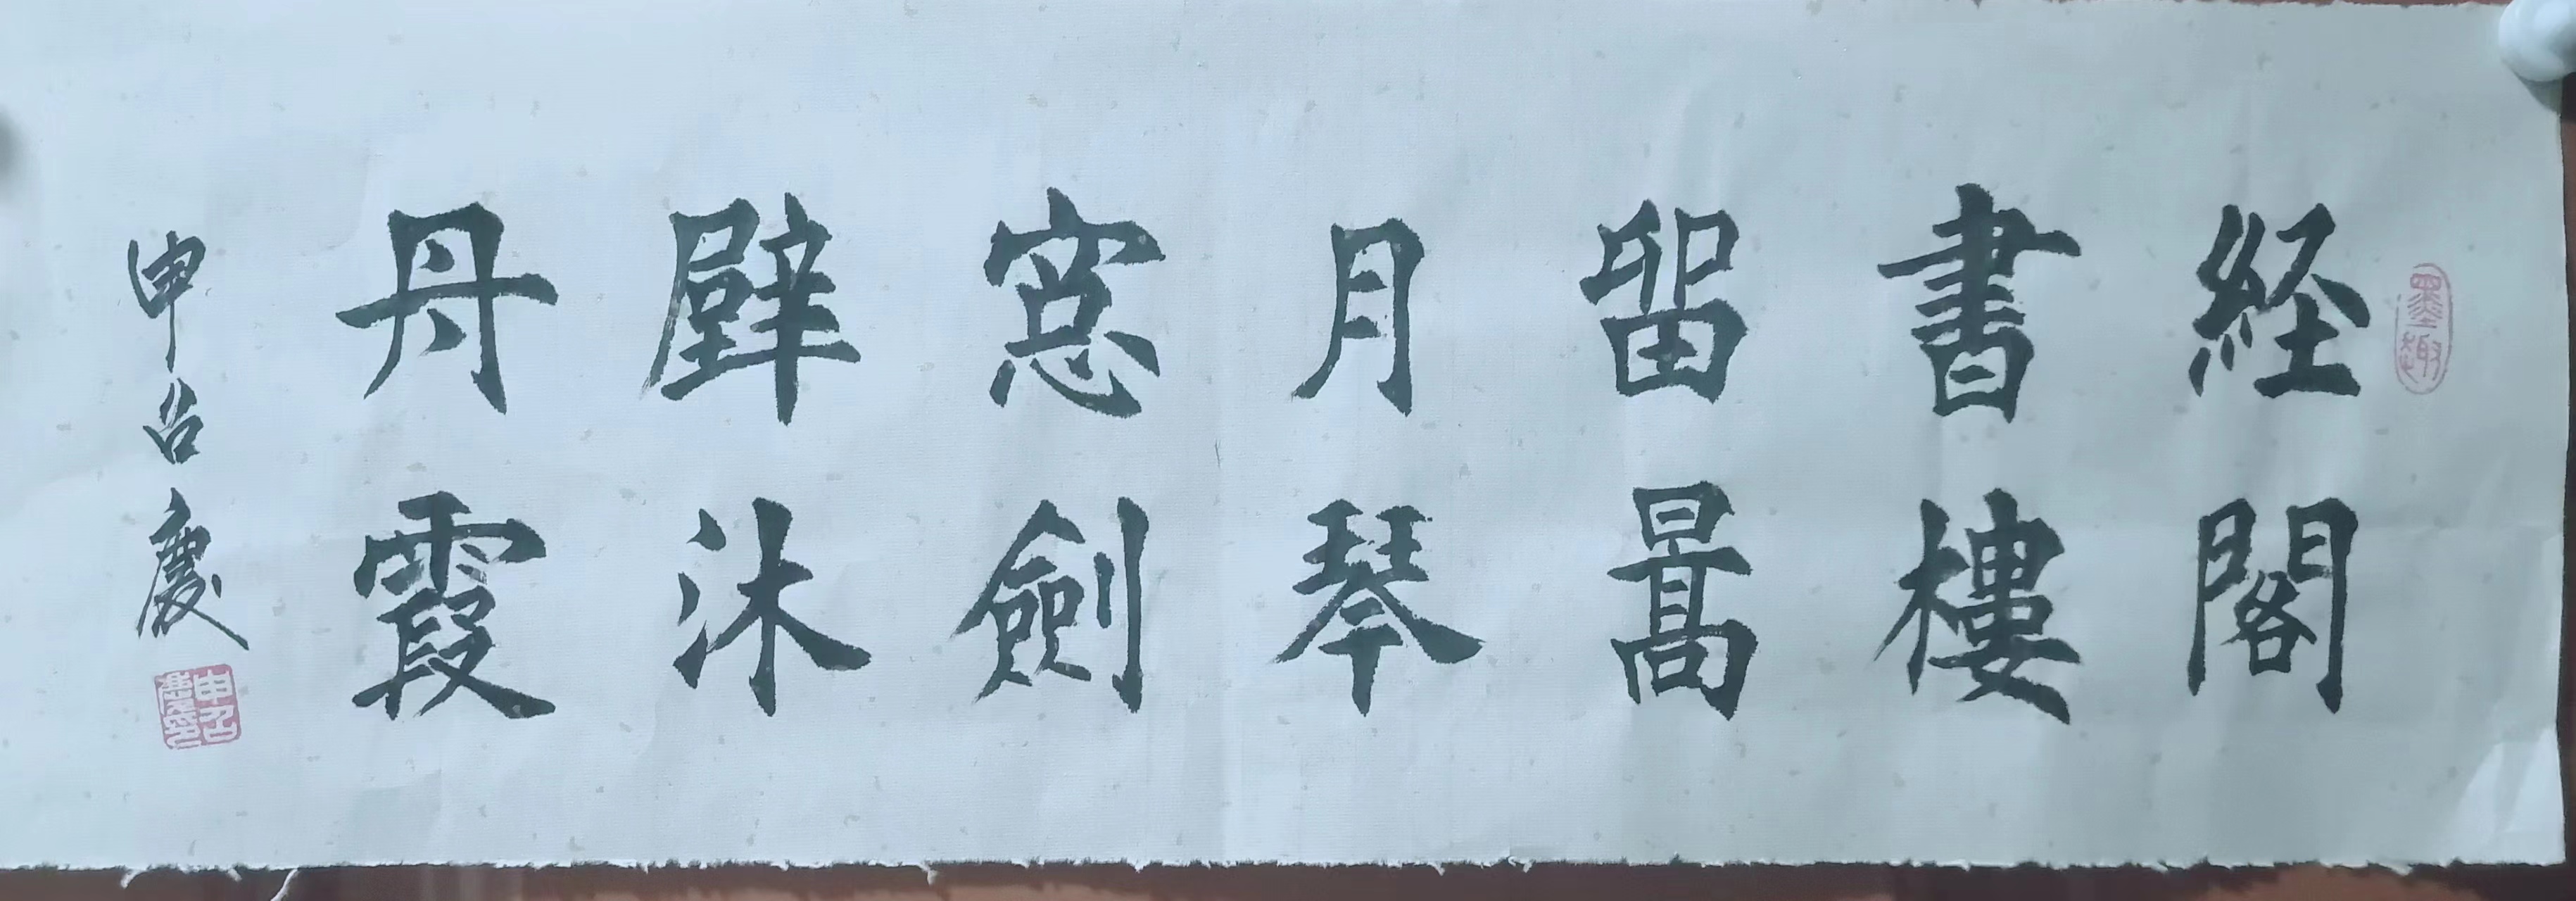 墨趣
経閣
書樓
留暠
月琴
窓劍
壁沐
丹霞
申台慶
申台慶印